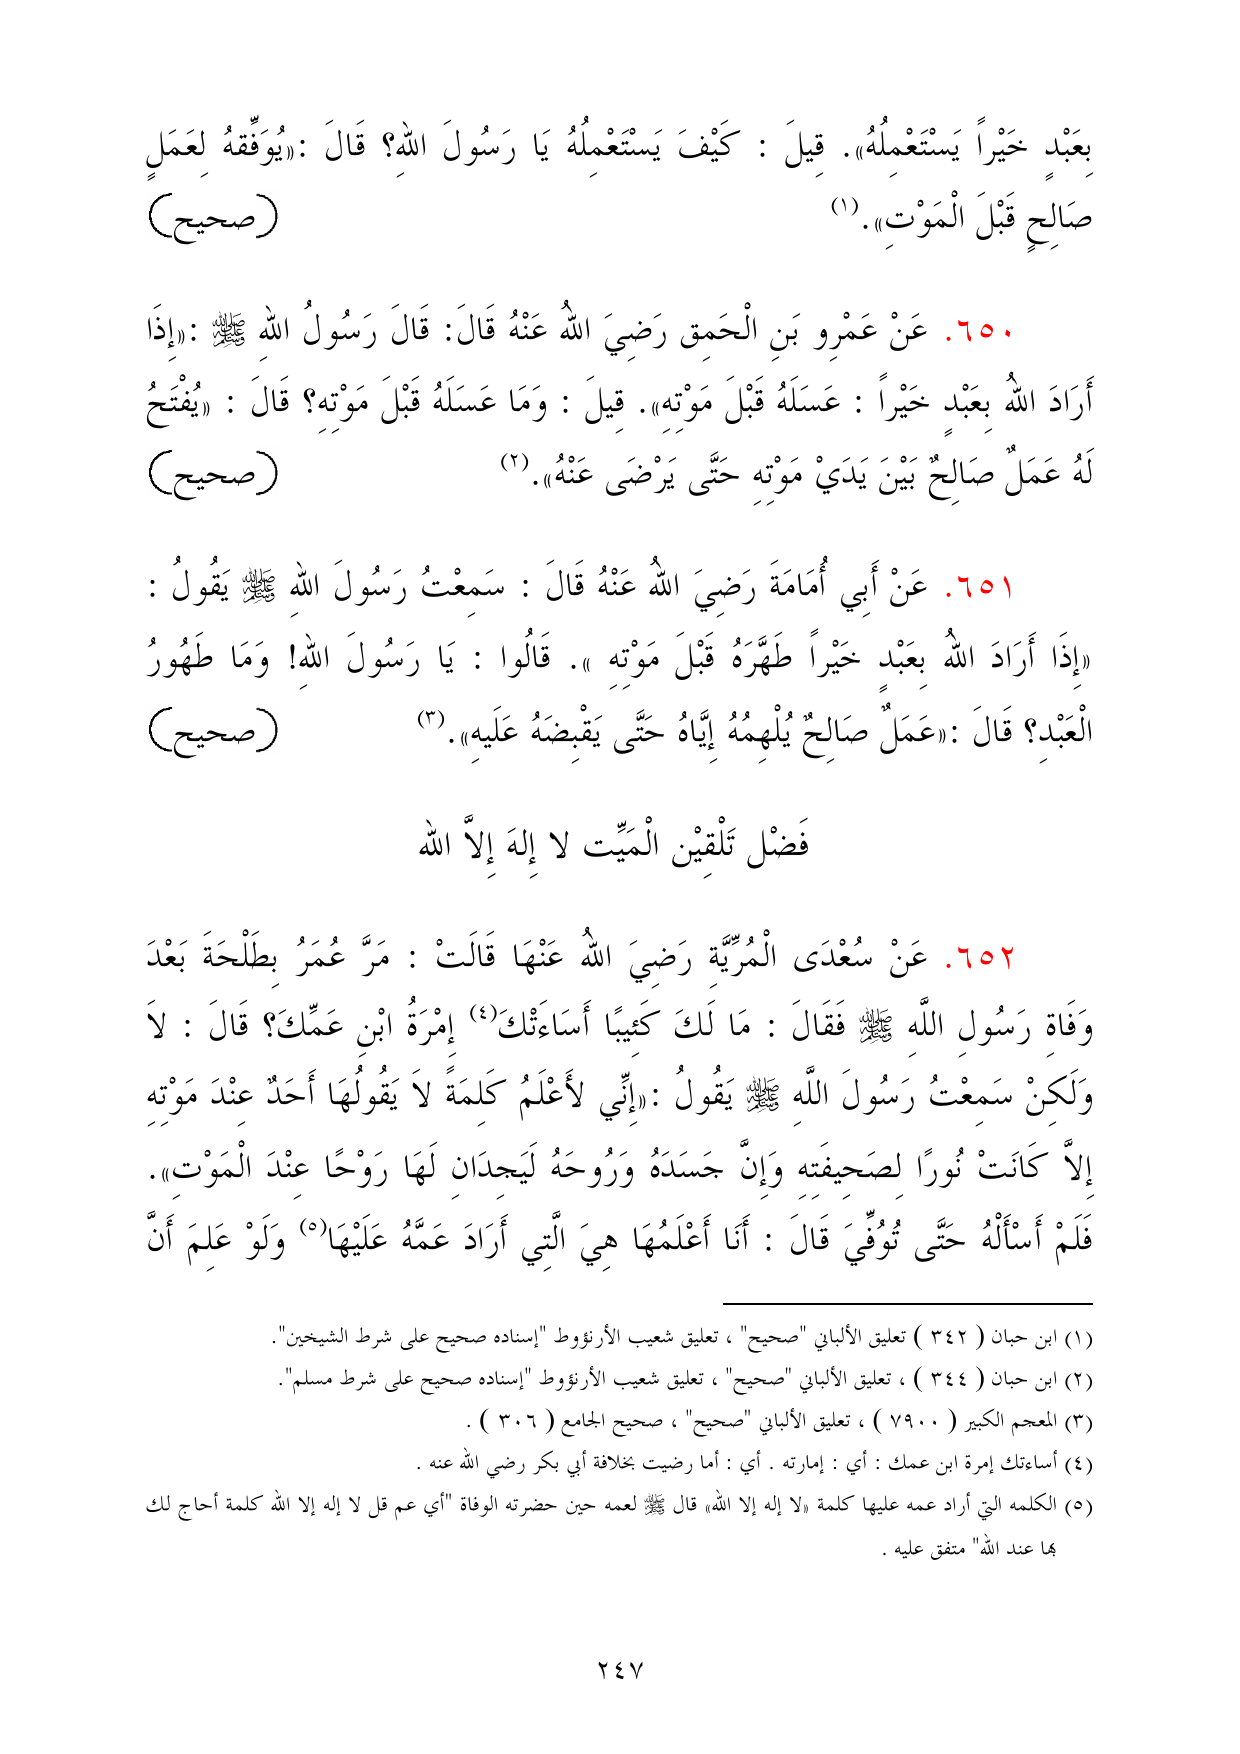 بِعَبْدٍ خَيْراً يَسْتَعْمِلُهُ». قِيلَ : كَيْفَ يَسْتَعْمِلُهُ يَا رَسُولَ اللهِ؟ قَالَ :«يُوَفِّقهُ لِعَمَلٍ
صَالِحٍ قَبْلَ الْمَوْتِ».(١) (صحيح)
٦٥٠. عَنْ عَمْرِو بَنِ الْحَمِق رَضِيَ اللهُ عَنْهُ قَالَ: قَالَ رَسُولُ اللهِ ﷺ :«إِذَا
أَرَادَ اللهُ بِعَبْدٍ خَيْراً : عَسَلَهُ قَبْلَ مَوْتِهِ». قِيلَ : وَمَا عَسَلَهُ قَبْلَ مَوْتِهِ؟ قَالَ : «يُفْتَحُ
لَهُ عَمَلٌ صَالِحٌ بَيْنَ يَدَيْ مَوْتِهِ حَتَّى يَرْضَى عَنْهُ».(٢) (صحيح)
٦٥١. عَنْ أَبِي أُمَامَةَ رَضِيَ اللهُ عَنْهُ قَالَ : سَمِعْتُ رَسُولَ اللهِ ﷺ يَقُولُ :
«إِذَا أَرَادَ اللهُ بِعَبْدٍ خَيْراً طَهَّرَهُ قَبْلَ مَوْتِهِ ». قَالُوا : يَا رَسُولَ اللهِ! وَمَا طَهُورُ
الْعَبْدِ؟ قَالَ :«عَمَلٌ صَالِحٌ يُلْهِمُهُ إِيَّاهُ حَتَّى يَقْبِضَهُ عَلَيهِ».(٣) (صحيح)
فَضْل تَلْقِيْن الْمَيِّت لا إِلهَ إِلاَّ الله
٦٥٢. عَنْ سُعْدَى الْمُرِّيَّةِ رَضِيَ اللهُ عَنْهَا قَالَتْ : مَرَّ عُمَرُ بِطَلْحَةَ بَعْدَ
وَفَاةِ رَسُولِ اللَّهِ ﷺ فَقَالَ : مَا لَكَ كَئِيبًا أَسَاءَتْكَ(٤) إِمْرَةُ ابْنِ عَمِّكَ؟ قَالَ : لاَ
وَلَكِنْ سَمِعْتُ رَسُولَ اللَّهِ ﷺ يَقُولُ :«إِنِّي لأَعْلَمُ كَلِمَةً لاَ يَقُولُهَا أَحَدٌ عِنْدَ مَوْتِهِ
إِلاَّ كَانَتْ نُورًا لِصَحِيفَتِهِ وَإِنَّ جَسَدَهُ وَرُوحَهُ لَيَجِدَانِ لَهَا رَوْحًا عِنْدَ الْمَوْتِ».
فَلَمْ أَسْأَلْهُ حَتَّى تُوُفِّيَ قَالَ : أَنَا أَعْلَمُهَا هِيَ الَّتِي أَرَادَ عَمَّهُ عَلَيْهَا(٥) وَلَوْ عَلِمَ أَنَّ
(١) ابن حبان ( ٣٤٢ ) تعليق الألباني "صحيح" ، تعليق شعيب الأرنؤوط "إسناده صحيح على شرط الشيخين".
(٢) ابن حبان ( ٣٤٤ ) ، تعليق الألباني "صحيح" ، تعليق شعيب الأرنؤوط "إسناده صحيح على شرط مسلم".
(٣) المعجم الكبير ( ٧٩٠٠ ) ، تعليق الألباني "صحيح" ، صحيح الجامع ( ٣٠٦ ) .
(٤) أساءتك إمرة ابن عمك : أي : إمارته . أي : أما رضيت بخلافة أبي بكر رضي الله عنه .
(٥) الكلمه التي أراد عمه عليها كلمة «لا إله إلا الله» قال ﷺ لعمه حين حضرته الوفاة "أي عم قل لا إله إلا الله كلمة أحاج لك
بها عند الله" متفق عليه .
٢٤٧